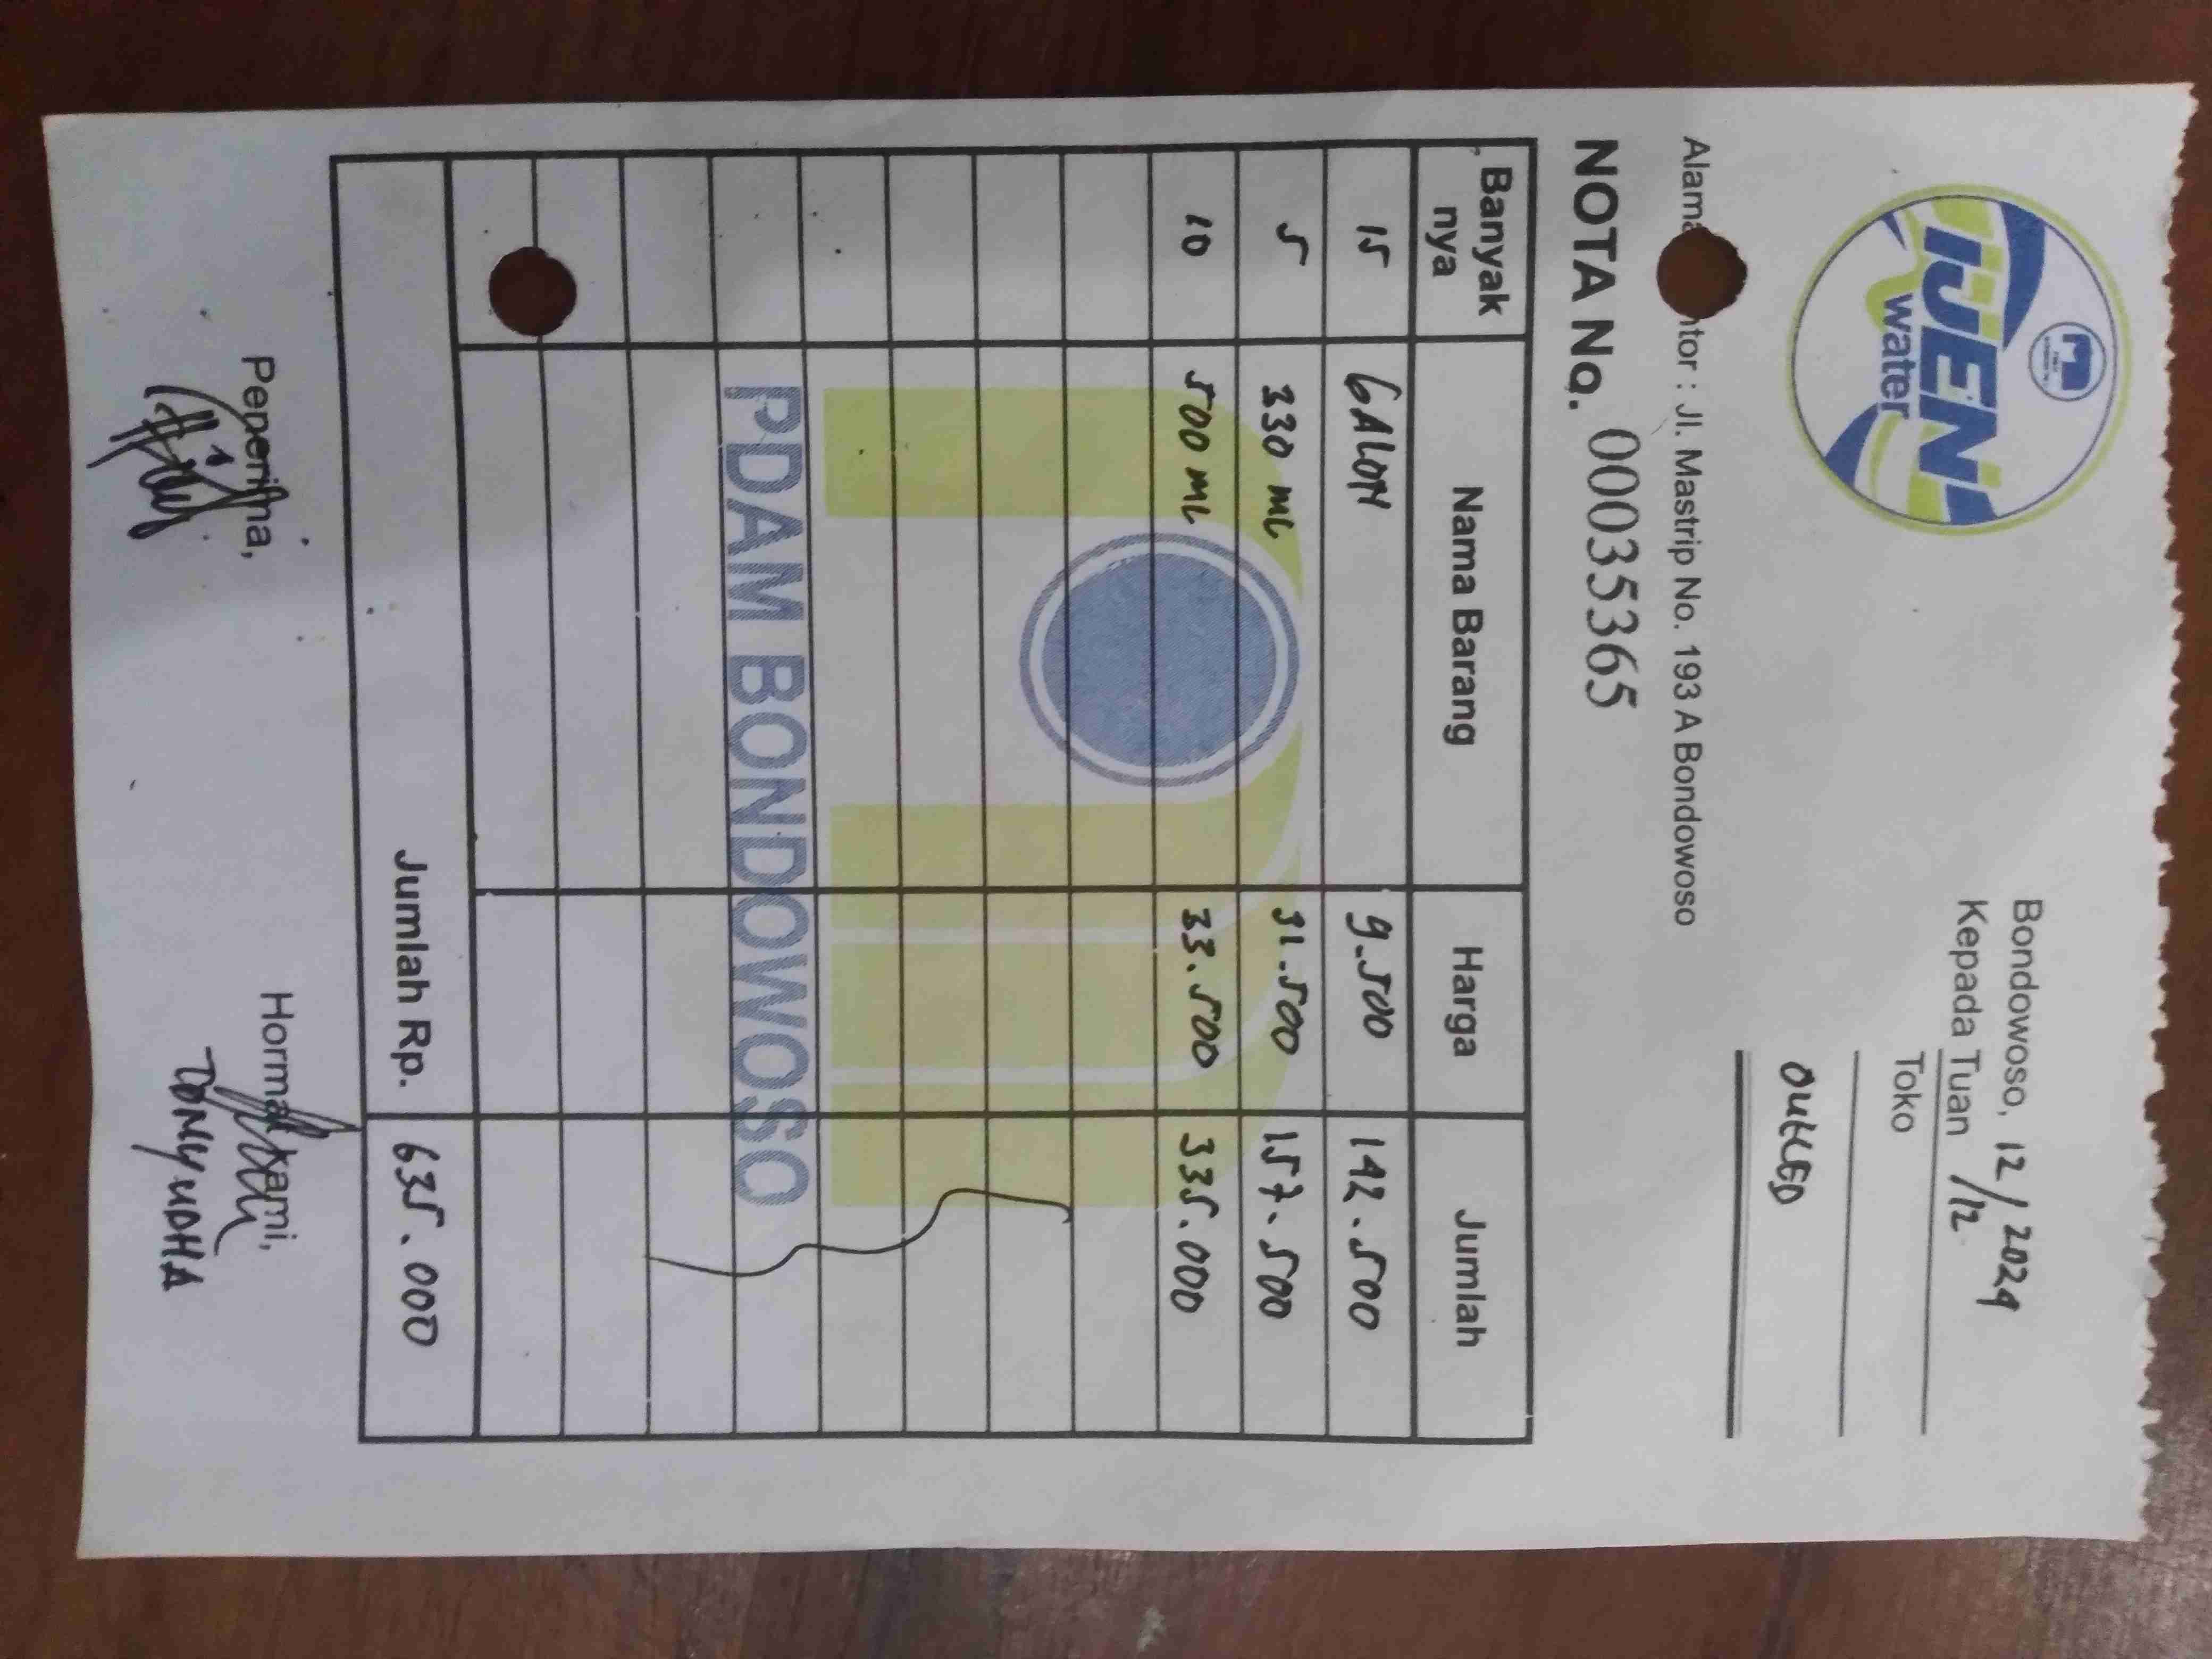 IJEN
water
Bondowoso, 12/12 2024
Kepada Tuan
Toko
OUTLED
Alama ntor : Jl. Mastrip No. 193 A Bondowoso
NOTA No. 00035365
Banyak nya Nama Barang Harga Jumlah
15 GALON 9.500 142.500
5 330 ML 31.500 157.500
10 500 ML 33.500 335.000
PDAM BONDOWOSO
Jumlah Rp. 635.000
Penerima, Hormat kami,